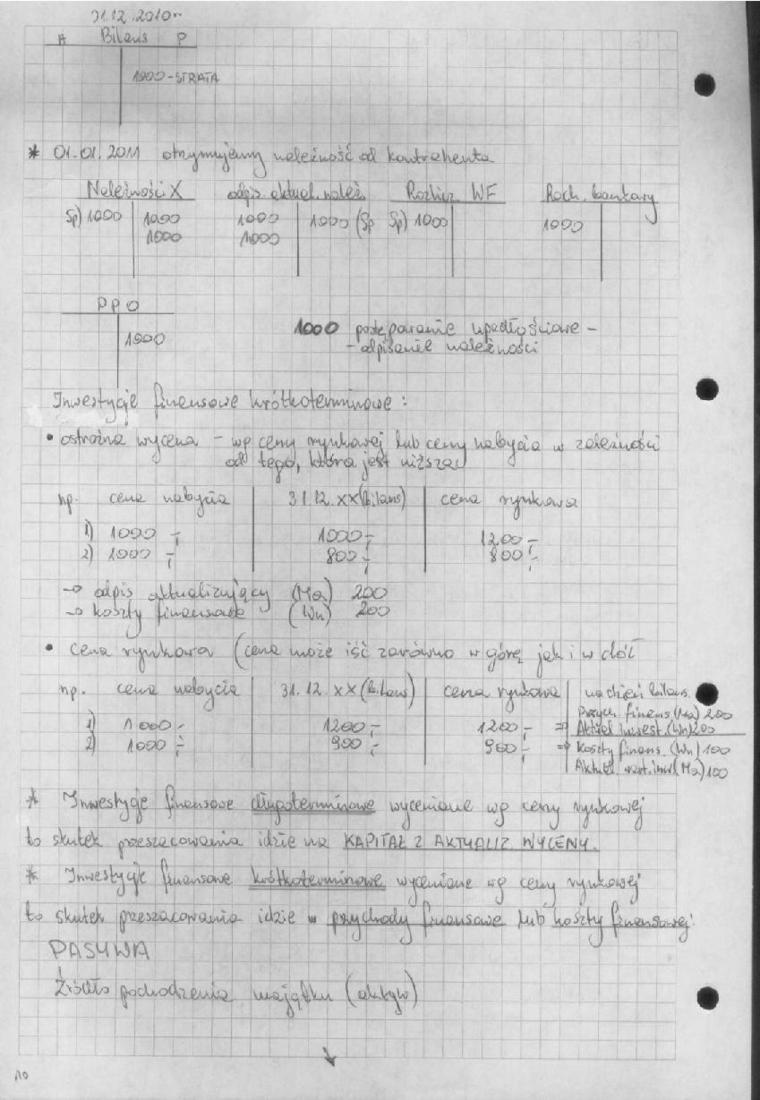 31.12.2010r
A Bilans P
1000-STRATA
* 01.01.2011 otrzymujemy należność od kontrahenta
Należności X odpis. aktual. należ. Rozlicz. WF Rach. bankowy
Sp) 1000 1000 1000 1000 (Sp Sp) 1000 1000
1000 1000
PPO
1000
1000 postępowanie upadłościowe -
- odpisanie należności
Inwestycje finansowe krótkoterminowe:
• ostrożna wycena - wg ceny rynkowej lub ceny nabycia w zależności
od tego, która jest niższa
np. cena nabycia 31.12.XX (bilans) cena rynkowa
1) 1000,- 1000,- 1200,-
2) 1000,- 800,- 800,-
→ odpis aktualizujący (Ma) 200
→ koszty finansowe (Wn) 200
• cena rynkowa (cena może iść zarówno w górę jak i w dół
np. cena nabycia 31.12.XX (bilans) cena rynkowa na dzień bilans.
Przych. finans. (Ma) 200
1) 1000,- 1200,- 1200,- ⇒ Aktual. invest. (Wn) 200
2) 1000,- 900,- 900,- ⇒ Koszty finans. (Wn) 100
Aktual. wart. inw. (Ma) 100
* Inwestycje finansowe długoterminowe wyceniane wg ceny rynkowej
to skutek przeszacowania idzie na KAPITAŁ Z AKTUALIZ. WYCENY.
* Inwestycje finansowe krótkoterminowe wyceniane wg ceny rynkowej
to skutek przeszacowania idzie w przychody finansowe lub koszty finansowej.
PASYWA
Źródło pochodzenia majątku (aktyw)
10